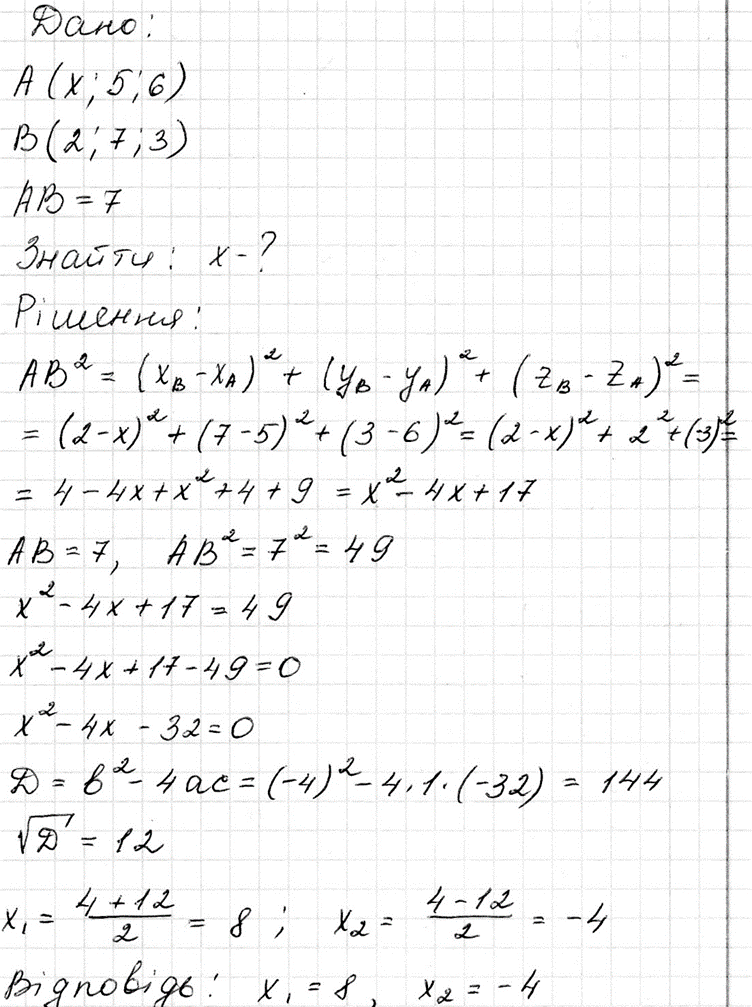 Дано:
A (x; 5; 6)
B (2; 7; 3)
AB = 7
Знайти: x - ?
Рішення:
AB² = (x_B - x_A)² + (y_B - y_A)² + (z_B - z_A)² =
= (2 - x)² + (7 - 5)² + (3 - 6)² = (2 - x)² + 2² + (-3)² =
= 4 - 4x + x² + 4 + 9 = x² - 4x + 17
AB = 7, AB² = 7² = 49
x² - 4x + 17 = 49
x² - 4x + 17 - 49 = 0
x² - 4x - 32 = 0
D = b² - 4ac = (-4)² - 4 · 1 · (-32) = 144
√D = 12
x₁ = (4 + 12)/2 = 8 ; x₂ = (4 - 12)/2 = -4
Відповідь: x₁ = 8, x₂ = -4